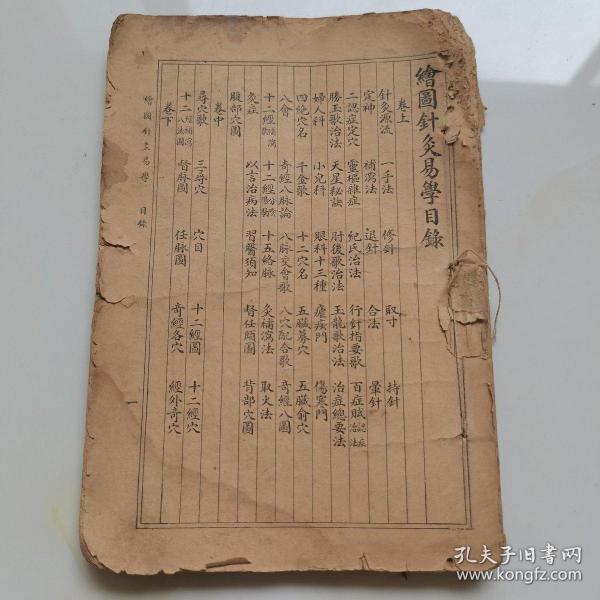 繪圖針灸易學目錄
卷上
針灸源流 一手法 修針 取寸 持針
定神 補瀉法 退針 合法 暈針
二認症定穴 靈樞雜症 紀氏治法 行針指要歌 百症賦認症治法
勝玉歌治法 天星秘訣 肘後歌治法 玉龍歌治法 治症總要法
婦人科 小兒科 眼科十三種 瘧疾門 傷寒門
四絶穴名 千金歌 十二穴名 五臟募穴 五臟俞穴
八會 奇經八脉論 八脉交會歌 八穴配合歌 奇經八圖
十二經 十二經 十五絡脉 灸補瀉法 取火法
灸症 以言治病法 習醫須知 督任頤圖 背部穴圖
腹部穴圖
卷中
尋穴歌 三尋穴 穴目 十二經圖 十二經穴
十二經補瀉八法圖 督脉圖 任脉圖 奇經各穴 經外奇穴
卷下
繪圖針灸易學 目錄 一
孔夫子旧书网
www.kongfz.com